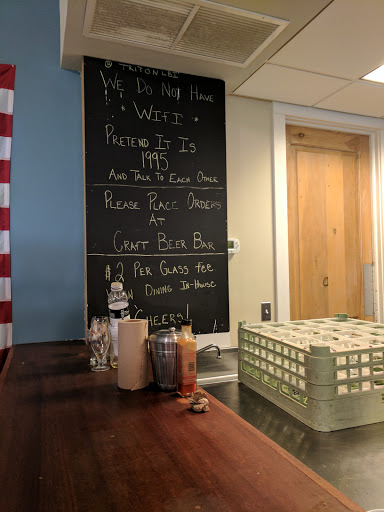 @ TRITONLBI
WE DO NOT HAVE
* WIFI *
PRETEND IT IS
1995
AND TALK TO EACH OTHER
PLEASE PLACE ORDERS
AT
CRAFT BEER BAR
$2 PER GLASS FEE
DINING IN-HOUSE
CHEERS!